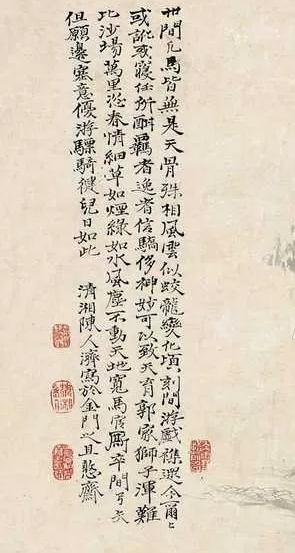 世間凡馬皆無是天骨殊相風雲似蛟龍變化頃刻間游戲襟迴令爾〻
或訛或寢任所酣羈者逸者信驕侈神妙可以致天育郭家獅子渾難
比沙場萬里沍春情細草如煙綠如水風塵不動天地寬馬官厮卒間可矣
但願邊塞意優游驃騎健兒日如此
清湘陳人濟寫於金門之且憨齋